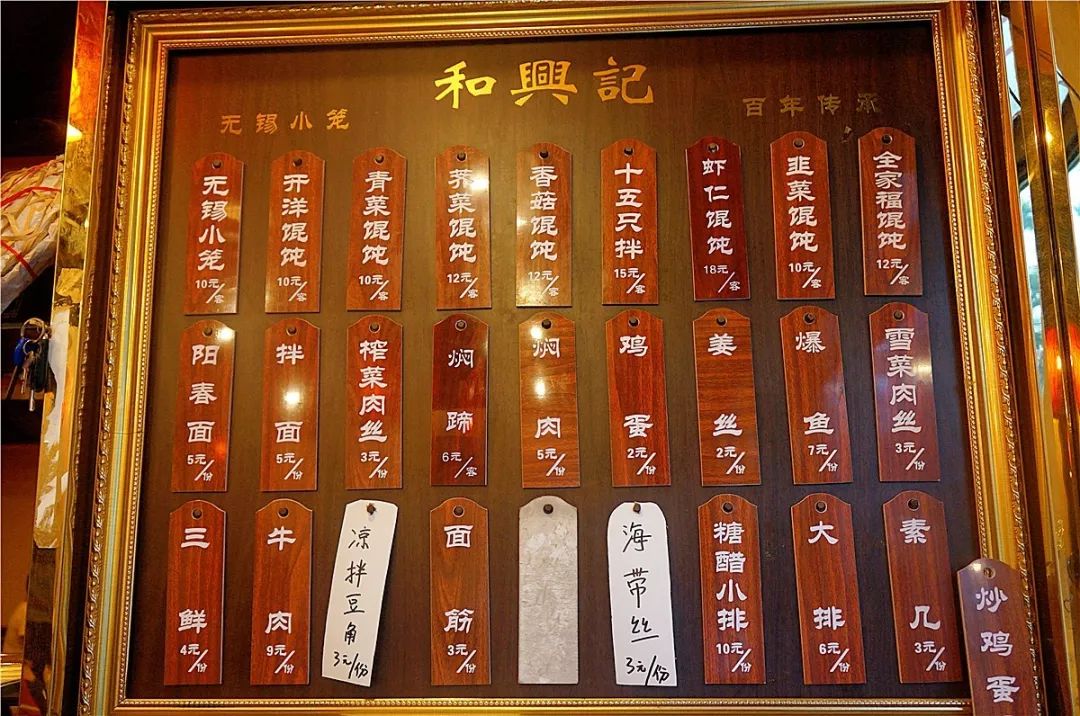 和興記
无锡小笼
百年传承
无锡小笼 10元/客
开洋馄饨 10元/客
青菜馄饨 10元/客
荠菜馄饨 12元/客
香菇馄饨 12元/客
十五只拌 15元/客
虾仁馄饨 18元/客
韭菜馄饨 10元/客
全家福馄饨 12元/客
阳春面 5元/份
拌面 5元/份
榨菜肉丝 3元/份
焖蹄 6元/客
焖肉 5元/份
鸡蛋 2元/份
姜丝 2元/份
爆鱼 7元/份
雪菜肉丝 3元/份
三鲜 4元/份
牛肉 9元/份
凉拌豆角 3元/份
面筋 3元/份
海带丝 3元/份
糖醋小排 10元/份
大排 6元/份
素几 3元/份
炒鸡蛋